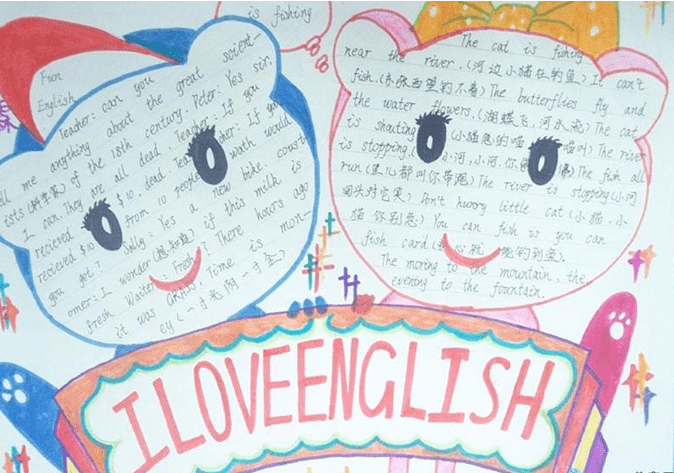 is fishing
Fun
English
Teacher: can you
tell me anything about the great scient-
ists (科学家) of the 18th century Peter: Yes sir.
I can. They are all dead. Teacher: If you
recieved $10 from 10 people
you got? Sally: Yes a new bike. coust-
omer: I wonder if this milk is
fresh Waiter: Fresh? There hours ago
it was GRASS. Time is mon-
ey (一寸光阴一寸金)
The cat is fishing
near the river. (河边小猫在钓鱼) It can't
fish. (东张西望钓不着) The butterflies fly and
the water flowers. (蝴蝶飞，河水流) The cat
is shouting (小猫急的喵 喵叫) The river
is stopping. (小河，小河你 ) The fish all
run (里心都叫你带跑) The river is stopping (小河
回头对它笑) Don't hworry little cat (小猫，小
猫 你别急) You can fish is you can
fish card
The moring to the mountain, the
evening to the fountain.
ILOVEENGLISH